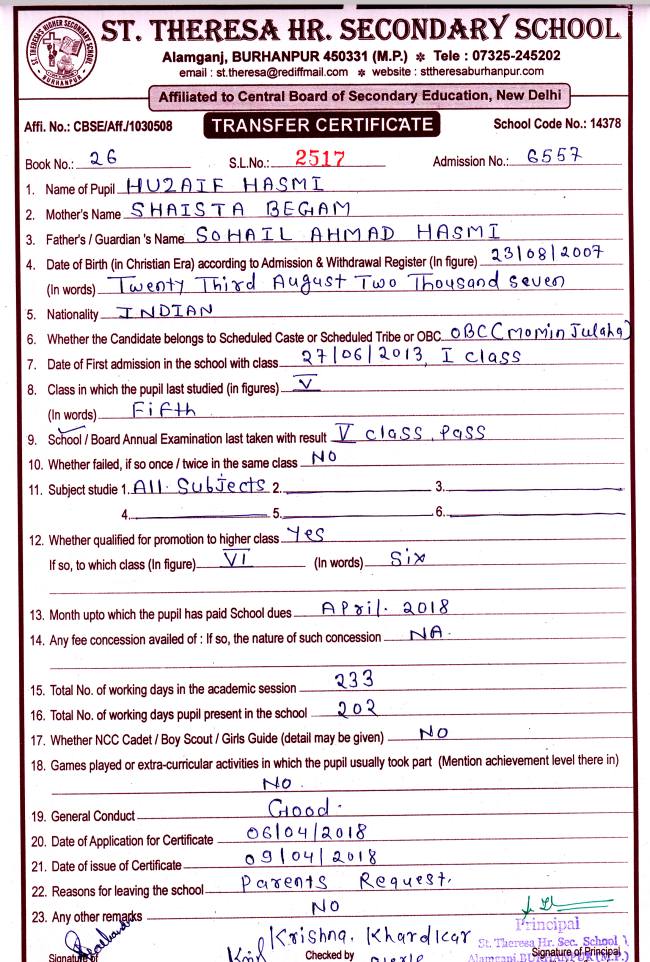 ST. THERESA HR. SECONDARY SCHOOL
Alamganj, BURHANPUR 450331 (M.P.) * Tele : 07325-245202
email : st.theresa@rediffmail.com * website : sttheresaburhanpur.com
Affiliated to Central Board of Secondary Education, New Delhi
Affi. No.: CBSE/Aff./1030508 TRANSFER CERTIFICATE School Code No.: 14378
Book No.: 26 S.L.No.: 2517 Admission No.: 6557
1. Name of Pupil HUZAIF HASMI
2. Mother's Name SHAISTA BEGAM
3. Father's / Guardian 's Name SOHAIL AHMAD HASMI
4. Date of Birth (in Christian Era) according to Admission & Withdrawal Register (In figure) 23/08/2007
(In words) Twenty Third August Two Thousand Seven
5. Nationality INDIAN
6. Whether the Candidate belongs to Scheduled Caste or Scheduled Tribe or OBC OBC (Momin Julaha)
7. Date of First admission in the school with class 27/06/2013, I class
8. Class in which the pupil last studied (in figures) V
(In words) Fifth
9. School / Board Annual Examination last taken with result V class, Pass
10. Whether failed, if so once / twice in the same class NO
11. Subject studie 1. All. Subjects 2. 3.
4. 5. 6.
12. Whether qualified for promotion to higher class Yes
If so, to which class (In figure) VI (In words) Six
13. Month upto which the pupil has paid School dues April. 2018
14. Any fee concession availed of : If so, the nature of such concession NA.
15. Total No. of working days in the academic session 233
16. Total No. of working days pupil present in the school 202
17. Whether NCC Cadet / Boy Scout / Girls Guide (detail may be given) NO
18. Games played or extra-curricular activities in which the pupil usually took part (Mention achievement level there in)
NO.
19. General Conduct Good.
20. Date of Application for Certificate 06/04/2018
21. Date of issue of Certificate 09/04/2018
22. Reasons for leaving the school Parents Request.
23. Any other remarks NO
Principal
Krishna. Khardikar St. Theresa Hr. Sec. School
Signature of Checked by Alamganj, BURHANPUR (M.P.) Signature of Principal